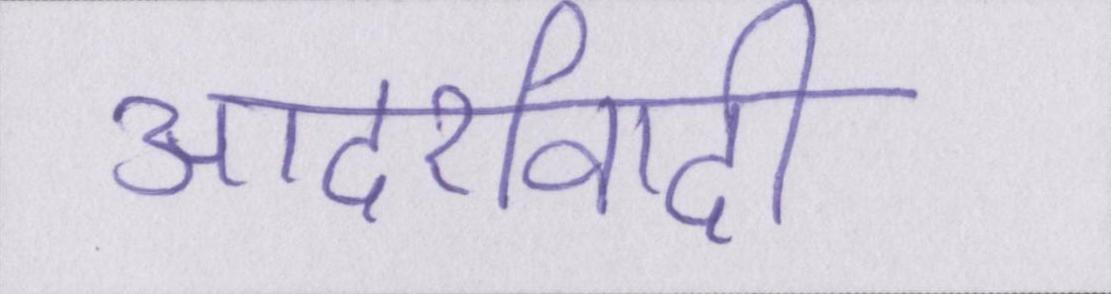 आदर्शवादी